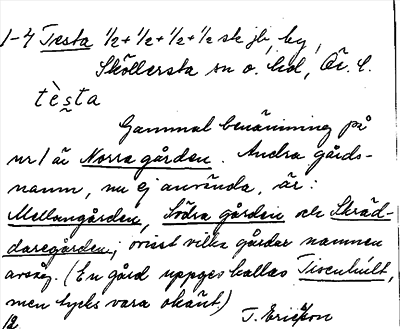 1-4 Testa 1/2+1/2+1/2+1/2 sk jb, by,
Sköllersta sn o. hd, Ör. l.
tèsta
Gammal benämning på
nr 1 är Norra gården. Andra gårds-
namn, nu ej använda, är:
Mellangården, Södra gården och Skräd-
daregården; ovisst vilka gårdar namnen
avsåg. (En gård uppges kallas Tivenhult,
men tycks vara okänt)
12 T. Ericsson